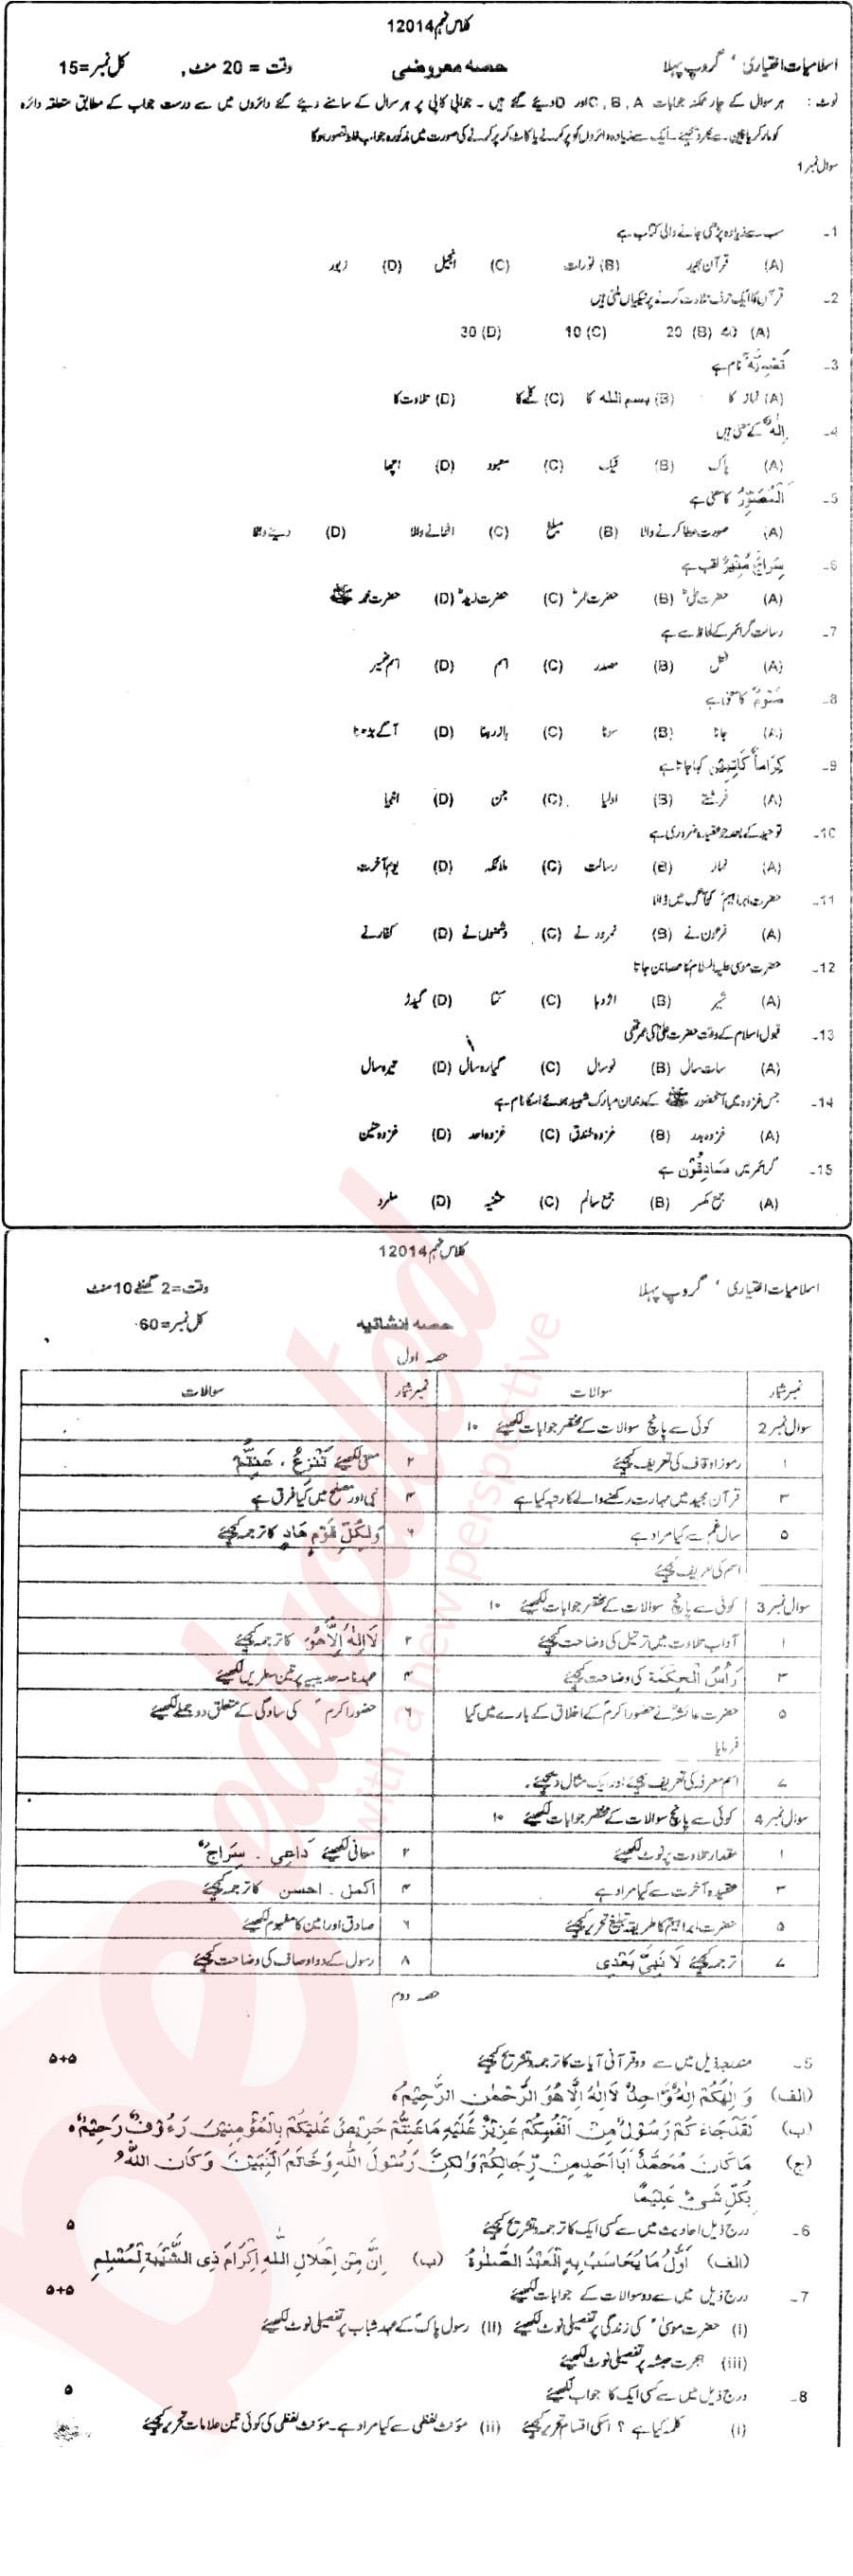 کلاس نہم 12014
اسلامیات اختیاری ، گروپ پہلا حصہ معروضی وقت = 20 منٹ, کل نمبر=15
نوٹ : ہر سوال کے چار ممکنہ جوابات A , B , C اور D دیئے گئے ہیں ۔ جوابی کاپی پر ہر سوال کے سامنے دیئے گئے دائروں میں سے درست جواب کے مطابق متعلقہ دائرہ
کو مارکر یا پین سے بھر دیجئیے ۔ ایک سے زیادہ دائروں کو پر کرنے یا کاٹ کر پر کرنے کی صورت میں مذکورہ جواب غلط تصور ہوگا
سوال نمبر 1
1۔ سب سے زیادہ پڑھی جانے والی کتاب ہے
(A) قرآن مجید (B) تورات (C) انجیل (D) زبور
2۔ قرآن کا ایک حرف تلاوت کرنے پر نیکیاں ملتی ہیں
(A) 40 (B) 20 (C) 10 (D) 30
3۔ نام ہے
(A) نماز کا (B) بسم اللہ کا (C) کلمے کا (D) تلاوت کا
4۔ اِلٰهٌ کے معنی ہیں
(A) پاک (B) نیک (C) معبود (D) اچھا
5۔ اَلْمُصَوِّرُ کا معنی ہے
(A) صورت عطا کرنے والا (B) مبلغ (C) اٹھانے والا (D) دینے والا
6۔ سِرَاجٌ مُّنِيْرٌ لقب ہے
(A) حضرت علیؓ (B) حضرت عمرؓ (C) حضرت زیدؓ (D) حضرت محمد ﷺ
7۔ رسالت گرائمر کے لحاظ سے ہے
(A) فعل (B) مصدر (C) اسم (D) اسم ضمیر
8۔ صَوْمٌ کا معنی ہے
(A) جانا (B) سونا (C) باز رہنا (D) آگے بڑھنا
9۔ كِرَاماً كَاتِبِيْن کہا جاتا ہے
(A) فرشتے (B) اولیا (C) جن (D) انبیا
10۔ توحید کے بعد جو عقیدہ ضروری ہے
(A) نماز (B) رسالت (C) ملائکہ (D) یوم آخرت
11۔ حضرت ابراہیمؑ کو آگ میں ڈالا
(A) فرعون نے (B) نمرود نے (C) دشمنوں نے (D) کفار نے
12۔ حضرت موسی علیہ السلام کا عصا بن جاتا
(A) شیر (B) اژدہا (C) کتا (D) گیدڑ
13۔ قبول اسلام کے وقت حضرت علیؓ کی عمر تھی
(A) سات سال (B) نو سال (C) گیارہ سال (D) تیرہ سال
14۔ جس غزوہ میں آنحضور ﷺ کے دندان مبارک شہید ہوئے اسکا نام ہے
(A) غزوہ بدر (B) غزوہ خندق (C) غزوہ احد (D) غزوہ حنین
15۔ گرائمر میں صَادِقُوْن ہے
(A) جمع مکسر (B) جمع سالم (C) تثنیہ (D) مفرد
کلاس نہم 12014
اسلامیات اختیاری ، گروپ پہلا وقت=2 گھنٹے 10 منٹ
حصہ انشائیہ کل نمبر=60
حصہ اول
نمبر شمار سوالات نمبر شمار سوالات
سوال نمبر 2 کوئی سے پانچ سوالات کے مختصر جوابات لکھیئے ۱۰
۱ رموز اوقاف کی تعریف کیجئے ۲ معنی لکھیئے تَنْزِعُ ، عَنِتُّمْ
۳ قرآن مجید میں مہارت رکھنے والے کا رتبہ کیا ہے ۴ نبی اور مصلح میں کیا فرق ہے
۵ سال غم سے کیا مراد ہے ۶ وَلِكُلِّ قَوْمٍ هَادٍ کا ترجمہ کیجئے
اسم کی تعریف کیجئے
سوال نمبر 3 کوئی سے پانچ سوالات کے مختصر جوابات لکھیئے ۱۰
۱ آداب تلاوت میں ترتیل کی وضاحت کیجئے ۲ لَا اِلٰهَ اِلَّا هُوَ کا ترجمہ کیجئے
۳ رَأْسُ الْحِكْمَة کی وضاحت کیجئے ۴ عہد نامہ حدیبیہ پر تین سطریں لکھیئے
۵ حضرت عائشہؓ نے حضور اکرمؐ کے اخلاق کے بارے میں کیا ۶ حضور اکرمؐ کی سادگی کے متعلق دو جملے لکھیئے
فرمایا
۷ اسم معرفہ کی تعریف کیجئے اور ایک مثال دیجئے۔
سوال نمبر 4 کوئی سے پانچ سوالات کے مختصر جوابات لکھیئے ۱۰
۱ مقدار تلاوت پر نوٹ لکھیئے ۲ معانی لکھیئے دَاعِی ۔ سِرَاجٌ
۳ عقیدہ آخرت سے کیا مراد ہے ۴ اکمل ۔ احسن کا ترجمہ کیجئے
۵ حضرت ابراہیمؑ کا طریقہ تبلیغ تحریر کیجئے ۶ صادق اور امین کا مفہوم لکھیئے
۷ ترجمہ کیجئے لَا نَبِيَّ بَعْدِی ۸ رسول کے دو اوصاف کی وضاحت کیجئے
حصہ دوم
5۔ مندرجہ ذیل میں سے دو قرآنی آیات کا ترجمہ و تشریح کیجئے ۵+۵
(الف) وَ اِلٰهُكُمْ اِلٰهٌ وَّاحِدٌ لَا اِلٰهَ اِلَّا هُوَ الرَّحْمٰنُ الرَّحِيْمُ ہ
(ب) لَقَدْ جَاءَ كُمْ رَسُوْلٌ مِّنْ اَنْفُسِكُمْ عَزِيْزٌ عَلَيْهِ مَا عَنِتُّمْ حَرِيْصٌ عَلَيْكُمْ بِالْمُؤْمِنِيْنَ رَءُوْفٌ رَّحِيْمٌ ہ
(ج) مَا كَانَ مُحَمَّدٌ اَبَا اَحَدٍ مِّنْ رِّجَالِكُمْ وَلٰكِنْ رَّسُوْلَ اللهِ وَ خَاتَمَ النَّبِيّنَ وَ كَانَ اللهُ
بِكُلِّ شَیْءٍ عَلِيْمًا
6۔ درج ذیل احادیث میں سے کسی ایک کا ترجمہ و تشریح کیجئے ۵
(الف) اَوَّلُ مَا يُحَاسَبُ بِهِ الْعَبْدُ الصَّلٰوةُ (ب) اِنَّ مِنْ اِجْلَالِ اللهِ اِكْرَامَ ذِی الشَّيْبَةِ لْمُسْلِمِ
7۔ درج ذیل میں سے دو سوالات کے جوابات لکھیئے ۵+۵
(i) حضرت موسیٰؑ کی زندگی پر تفصیلی نوٹ لکھیئے (ii) رسول پاکؐ کے عہد شباب پر تفصیلی نوٹ لکھیئے
(iii) ہجرت حبشہ پر تفصیلی نوٹ لکھیئے
8۔ درج ذیل میں سے کسی ایک کا جواب لکھیئے ۵
(i) کلمہ کیا ہے ؟ اسکی اقسام تحریر کیجئے (ii) مؤنث لفظی سے کیا مراد ہے۔ مؤنث لفظی کی کوئی تین علامات تحریر کیجئے
beeducated
with a new perspective